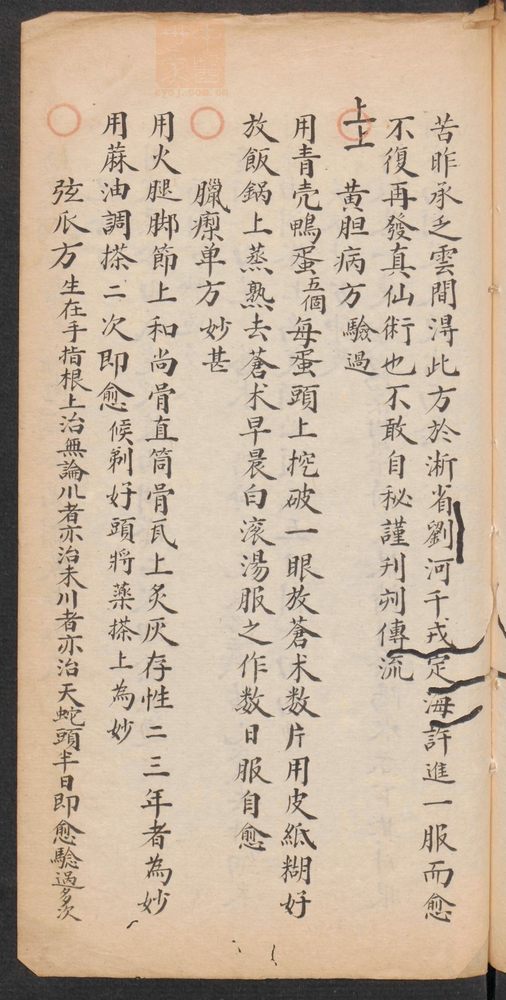 苦昨承乏雲間淂此方於淅省劉河千戎定海許進一服而愈
不復再發真仙術也不敢自秘謹刋刋傳流
上上 黃胆病方 驗過
用青壳鴨蛋五個每蛋頭上挖破一眼放蒼术数片用皮紙糊好
放飯鍋上蒸熟去蒼术早晨白滚湯服之作数日服自愈
臘瘰單方 妙甚
用火腿脚節上和尚骨直筒骨瓦上炙灰存性二三年者為妙
用蔴油調搽二次即愈候剃好頭將薬搽上為妙
弦爪方 生在手指根上治無論川者亦治未川者亦治天蛇頭半日即愈驗過多次